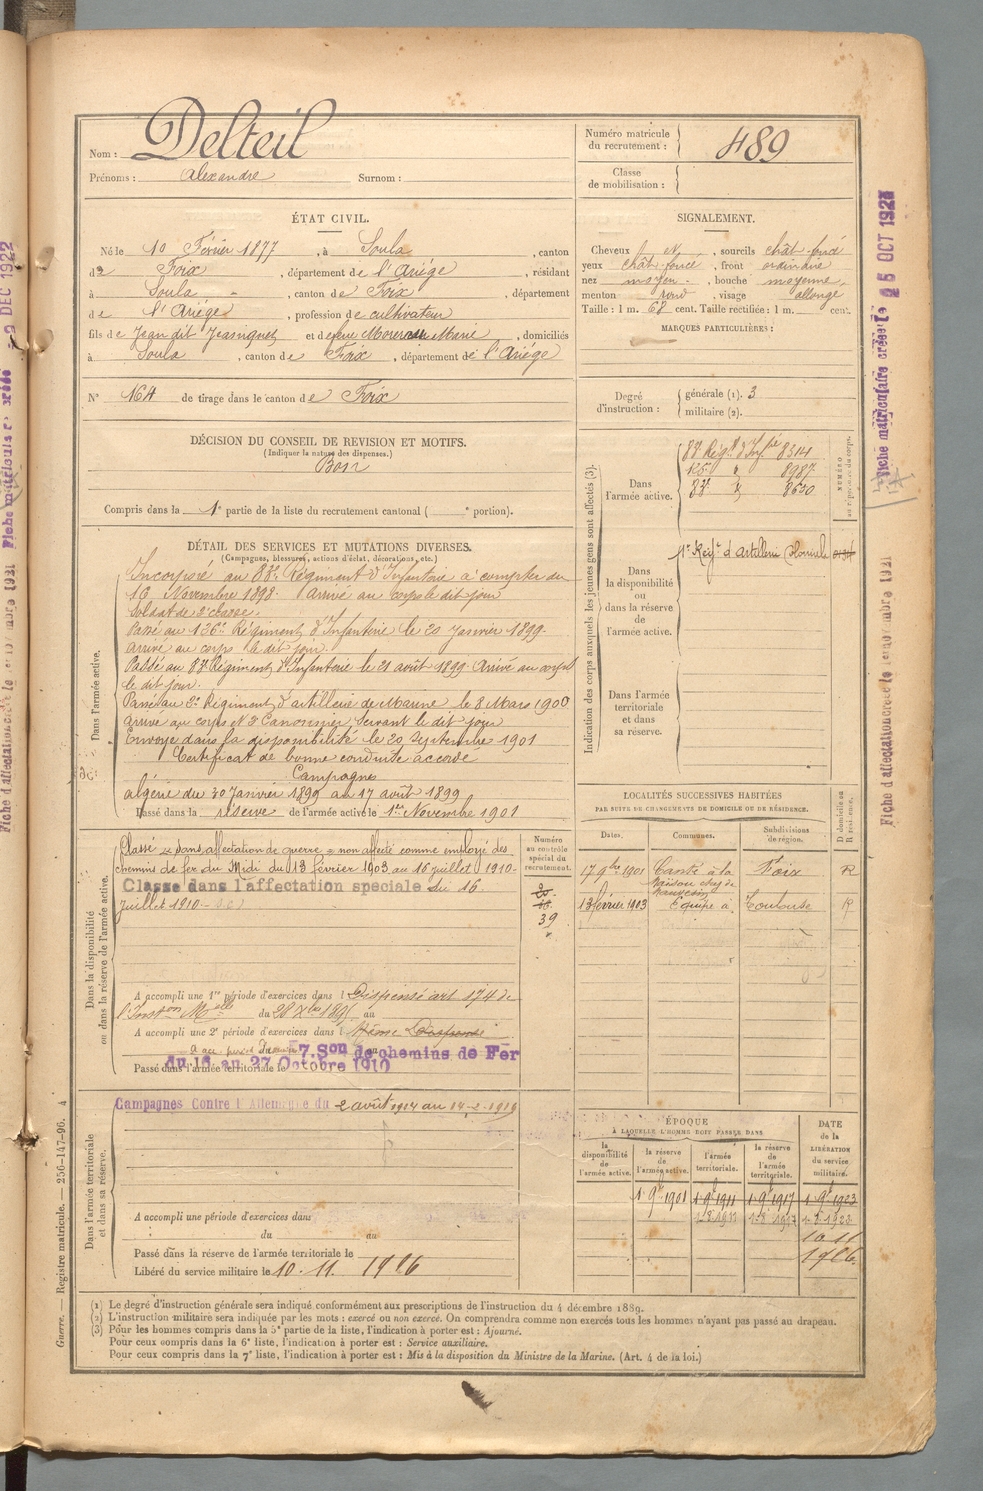 Nom : Delteil
Prénoms : Alexandre Surnom :
Numéro matricule du recrutement : 489
Classe de mobilisation :
ÉTAT CIVIL.
Né le 10 Février 1877, à Soula, canton
de Foix, département de l'Ariége, résidant
à Soula, canton de Foix, département
de l'Ariége, profession de cultivateur
fils de Jean dit Jeansignet et de feue Marie, domiciliés
à Soula, canton de Foix, département de l'Ariége
N° 164 de tirage dans le canton de Foix
SIGNALEMENT.
Cheveux N, sourcils chât. foncé
yeux chât. foncé, front ordinaire
nez moyen, bouche moyenne,
menton rond, visage allongé
Taille : 1 m. 68 cent. Taille rectifiée : 1 m. cent.
MARQUES PARTICULIÈRES :
Degré d'instruction :
générale (1). 3
militaire (2).
DÉCISION DU CONSEIL DE REVISION ET MOTIFS.
(Indiquer la nature des dispenses.)
Bon
Compris dans la 1e partie de la liste du recrutement cantonal ( e portion).
DÉTAIL DES SERVICES ET MUTATIONS DIVERSES.
(Campagnes, blessures, actions d'éclat, décorations, etc.)
Dans l'armée active.
Incorporé au 88e Régiment d'Infanterie à compter du
16 Novembre 1898. Arrivé au corps le dit jour
Soldat de 2e classe.
Passé au Régiment d'Infanterie le 20 Janvier 1899.
Arrivé au corps le dit jour.
Passé au Régiment d'Infanterie le 21 août 1899. Arrivé au corps
le dit jour.
Passé au Régiment d'artillerie de Marine le 8 Mars 1900
Arrivé au corps et 2e Canonnier servant le dit jour
Envoyé dans la disponibilité le 20 Septembre 1901
Certificat de bonne conduite accordé
Campagnes
Algérie du 30 Janvier 1899 au 17 août 1899
Passé dans la réserve de l'armée active le 1er Novembre 1901
Indication des corps auxquels les jeunes gens sont affectés (3).
NUMÉRO au répertoire du corps.
Dans l'armée active.
Régt d'Infie 8314
8987
8650
Dans la disponibilité ou dans la réserve de l'armée active.
1er Régt d'Artillerie Coloniale
Dans l'armée territoriale et dans sa réserve.
Dans la disponibilité ou dans la réserve de l'armée active.
Numéro au contrôle spécial du recrutement.
39
Classé dans affectation de guerre non affecté comme employé des
chemins de fer du Midi du 13 février 1903 au 16 juillet 1910.
Classé dans l'affectation speciale du 16
juillet 1910.
A accompli une 1re période d'exercices dans l Dispensé art 174 de
l'Inston du 28 Xbre au
A accompli une 2e période d'exercices dans l
7. Son de chemins de Fer
du 16 au 27 Octobre 1910
Passé dans l'armée territoriale le
LOCALITÉS SUCCESSIVES HABITÉES
PAR SUITE DE CHANGEMENTS DE DOMICILE OU DE RÉSIDENCE.
Dates. Communes. Subdivisions de région. D domicile ou R résidence.
17 9bre 1901 Foix R
13 février 1903 Equipe à Toulouse R
Dans l'armée territoriale et dans sa réserve.
Campagnes Contre l'Allemagne du 2 août 1914 au 14-2-1919
A accompli une période d'exercices dans
du au
Passé dans la réserve de l'armée territoriale le
Libéré du service militaire le 10. 11. 1926
ÉPOQUE
À LAQUELLE L'HOMME DOIT PASSER DANS
la disponibilité de l'armée active. la réserve de l'armée active. l'armée territoriale. la réserve de l'armée territoriale.
DATE de la LIBÉRATION du service militaire.
1 9bre 1901 1 9bre 1911 1 9bre 1917 1 9bre 1923
10 11
1926
(1) Le degré d'instruction générale sera indiqué conformément aux prescriptions de l'instruction du 4 décembre 1889.
(2) L'instruction militaire sera indiquée par les mots : exercé ou non exercé. On comprendra comme non exercés tous les hommes n'ayant pas passé au drapeau.
(3) Pour les hommes compris dans la 5e partie de la liste, l'indication à porter est : Ajourné.
Pour ceux compris dans la 6e liste, l'indication à porter est : Service auxiliaire.
Pour ceux compris dans la 7e liste, l'indication à porter est : Mis à la disposition du Ministre de la Marine. (Art. 4 de la loi.)
Guerre. — Registre matricule. — 256-147-96. 4
DEC 1922
Fiche matriculaire créée le 25 OCT 1923
Fiche d'affectation créée le